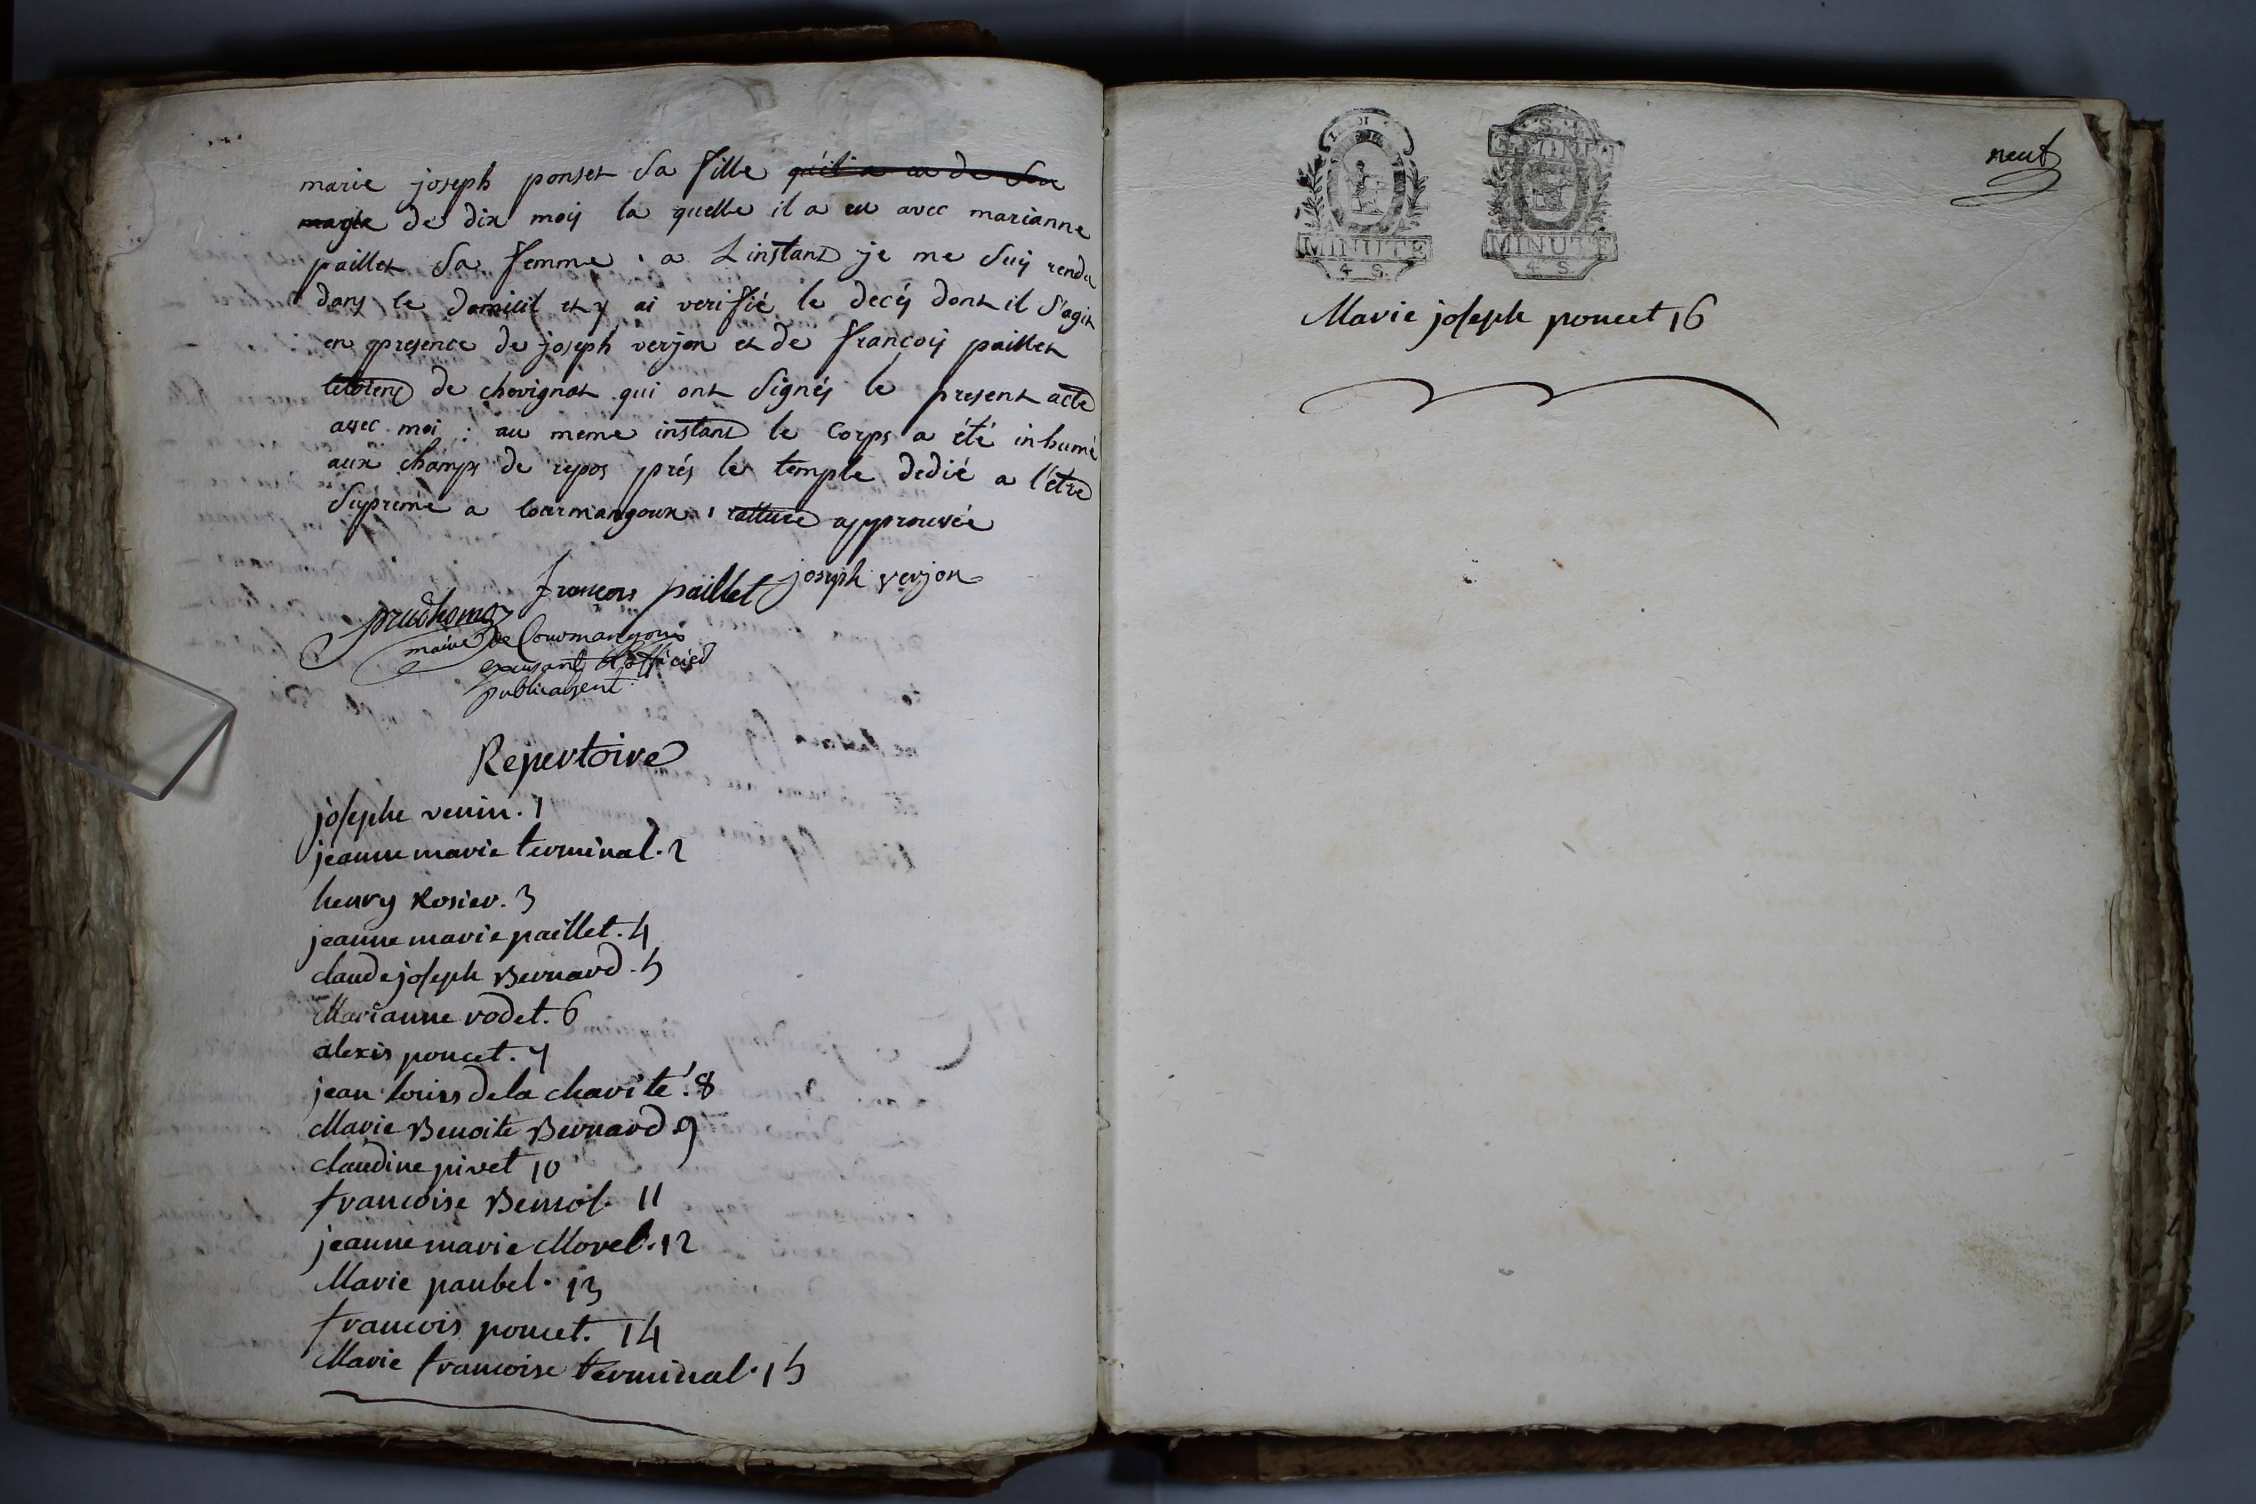 marie joseph ponset sa fille qu'il a eu de son
marie de dix moij la quelle il a eu avec marianne
paillet sa femme . a Linstant je me suij rendu
danj le domicil et y ai verifié le decej dont il s'agit
en presence de joseph verjon et de françoij paillet
de chevignat qui ont signéj le present acte
avec moi : au meme instant le Corps a été inhumé
aux champs de repos préj le temple dedié a l'être
Supreme a Courmangoux , rature approuvée
françois paillet joseph verjon
prudhome
maire de Courmangoux
exersant l'officied
public
Repertoire
josephe venin . 1
jeanne marie terminal . 2
henry Rosier . 3
jeanne marie paillet . 4
claude joseph Bernard . 5
Marianne rodet . 6
alexis poncet . 7
jean louis de la charité . 8
Marie Benoite Bernard . 9
claudine pivet 10
francoise 11
jeanne marie Morel . 12
Marie paubel . 13
francois poncet . 14
Marie francoise terminal . 15
neuf
MINUTE
4 S.
MINUTE
4 S.
Marie joseph poncet 16